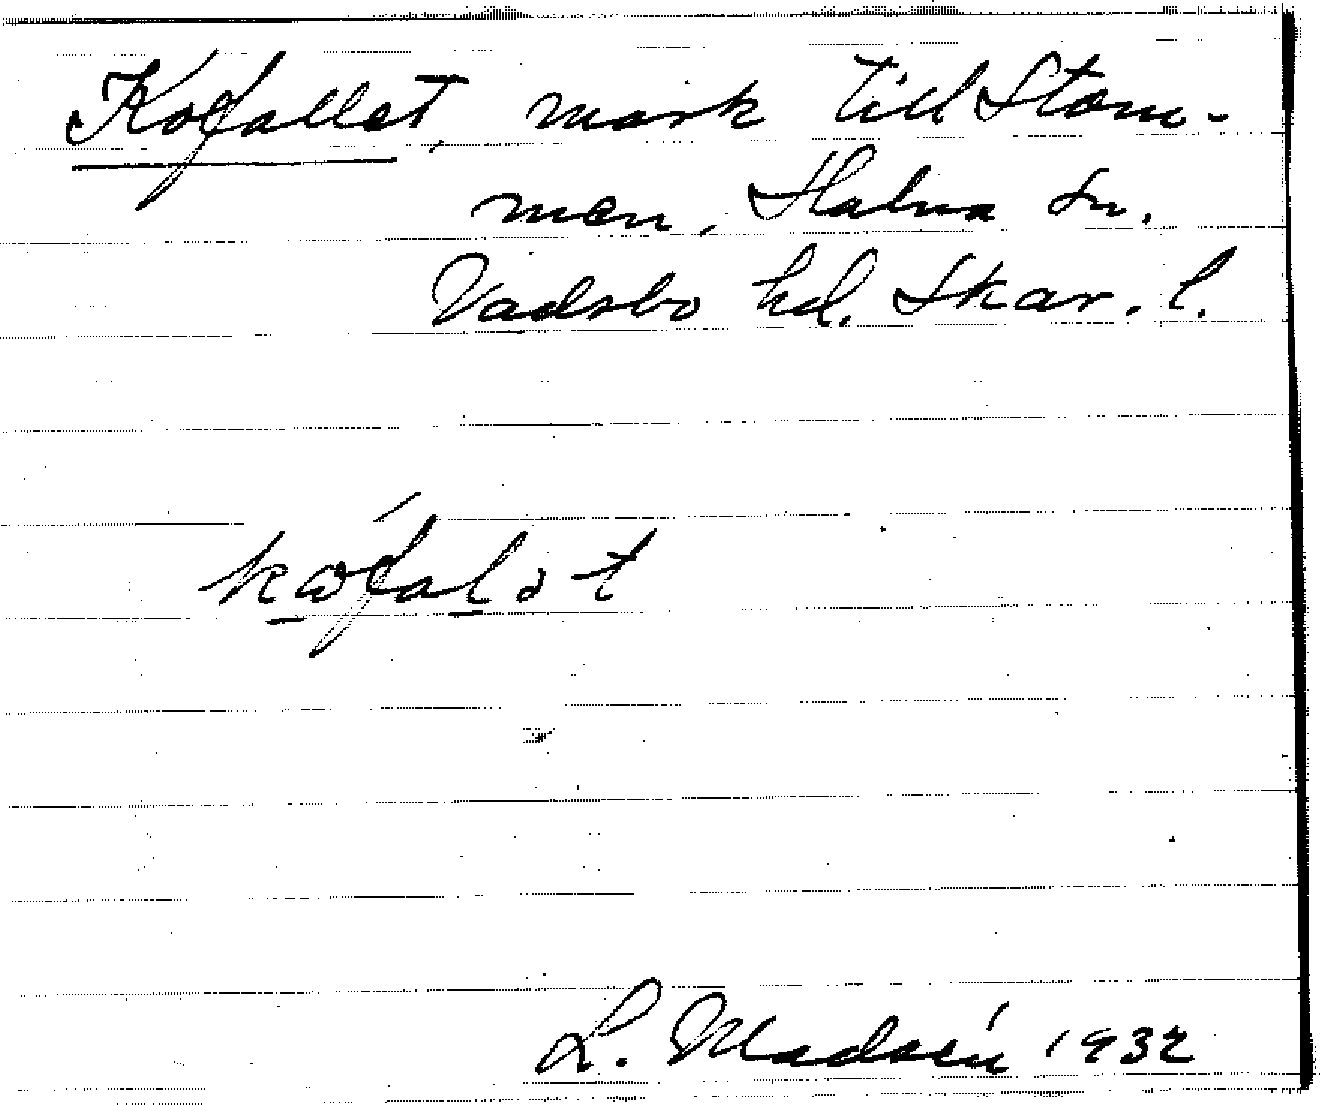 Kofallet, mark till Stom-
men, Halna sn.
Vadsbo hd. Skar. l.
L. Madsén 1932